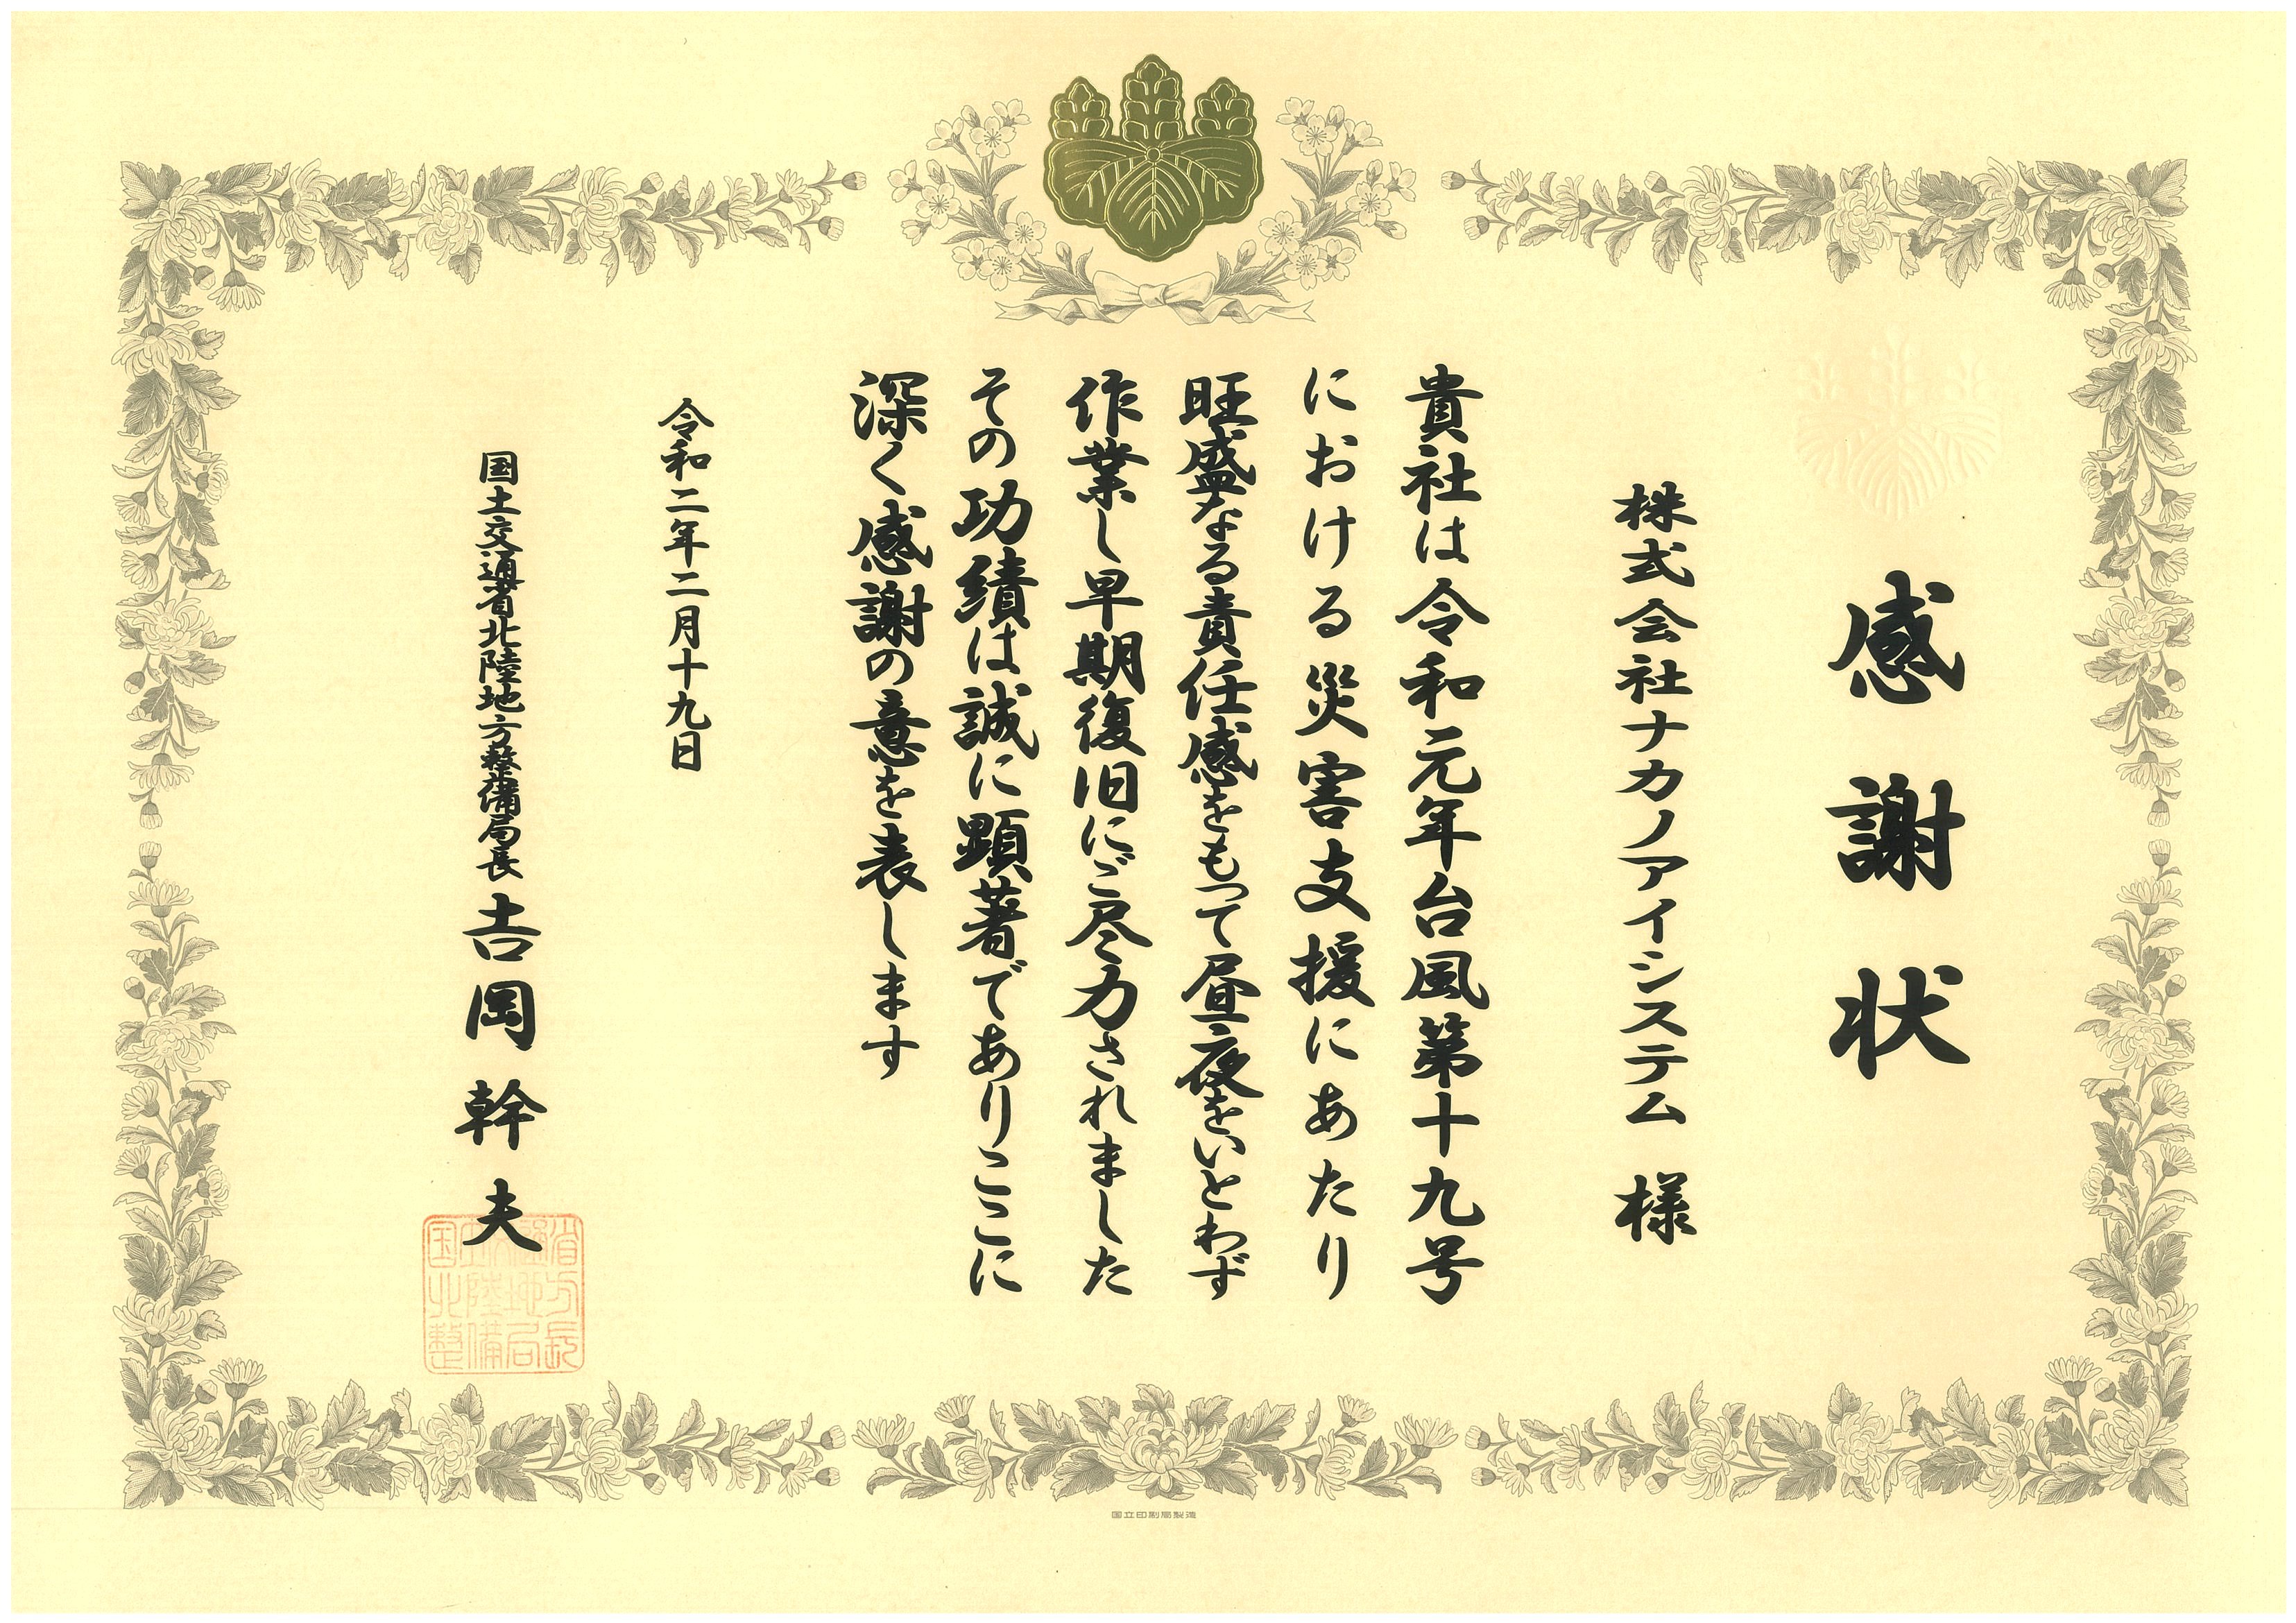 感謝状
株式会社ナカノアイシステム 様
貴社は令和元年台風第十九号
における災害支援にあたり
旺盛なる責任感をもって昼夜をいとわず
作業し早期復旧にご尽力されました
その功績は誠に顕著でありここに
深く感謝の意を表します
令和二年二月十九日
国土交通省北陸地方整備局長 吉岡幹夫
国立印刷局製造